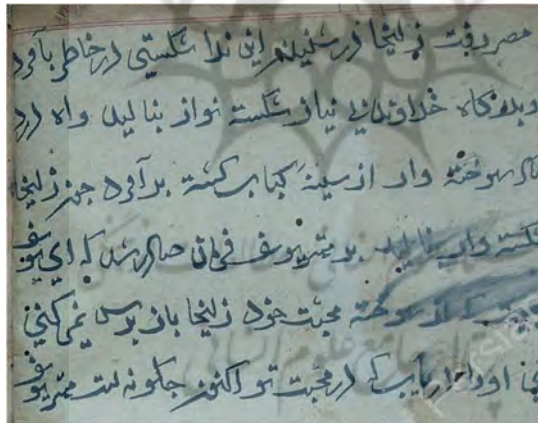 مصر رفت زلیخا از شنیدن این ندا شکستی در خاطر بآورد
و بدرگاه خداوند بی نیاز شکسته نواز بنالید و اه درد
سوخته وار از سینه کباب کشته بر آورد چون زلیخا
شکسته وار بنالید بر مهتر یوسف فرمان صادر شد که ای یوسف
که از سوخته محبت خود زلیخا باز پرس نمی کنی
او را دریاب که در محبت تو اکنون چکونه است مهتر یوسف